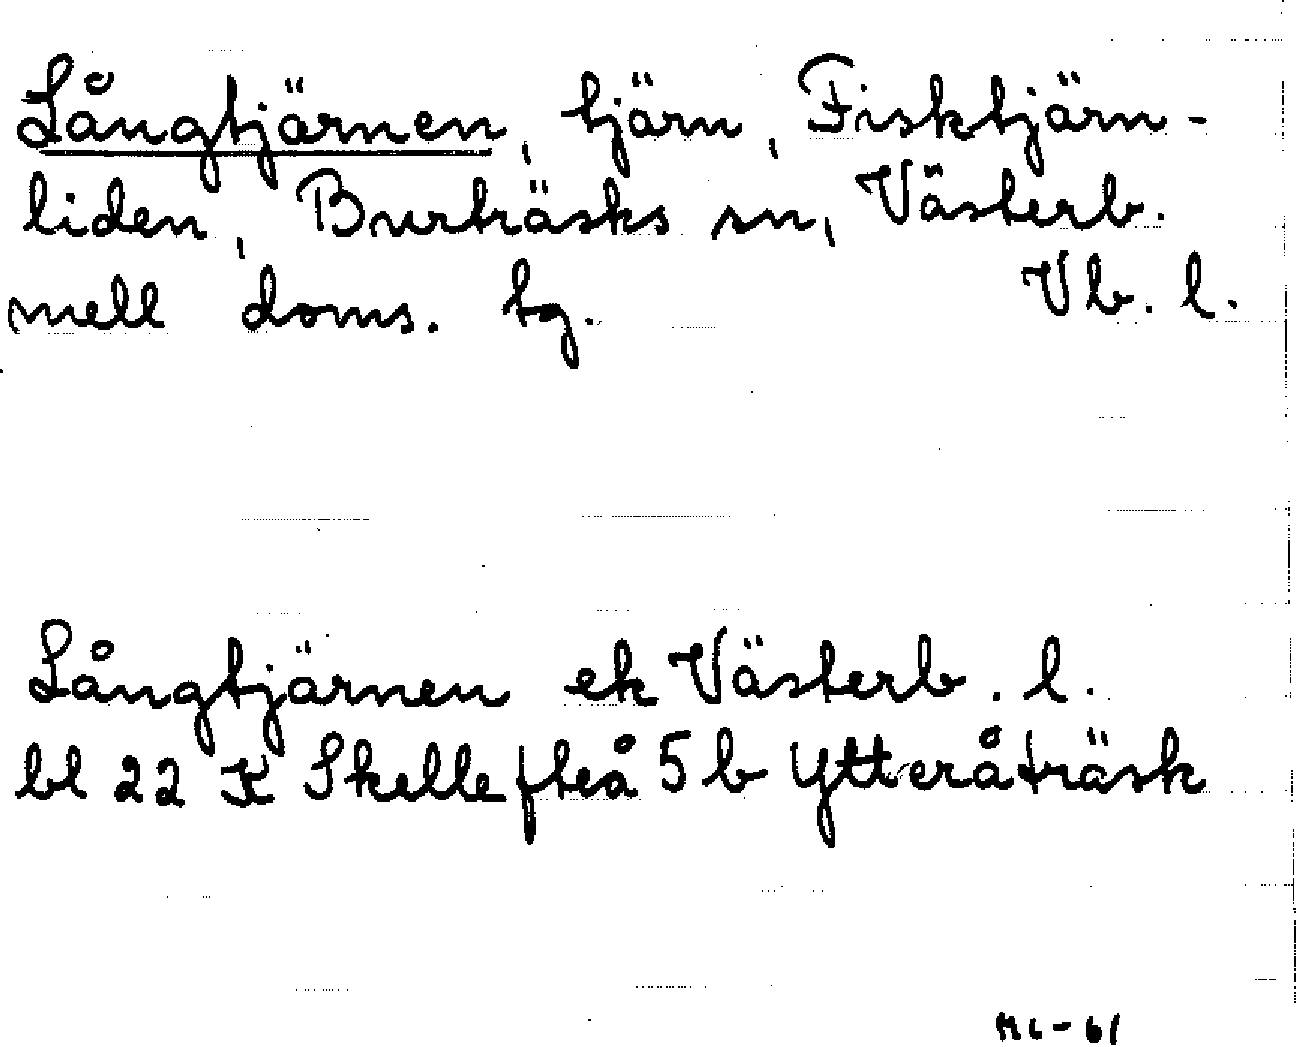 Långtjärnen, tjärn, Fisktjärn-
liden, Burträsks sn, Västerb.
mell doms. tg. Vb. l.
Långtjärnen ek Västerb. l.
bl 22 K Skellefteå 5 b Ytteråträsk
ML-61